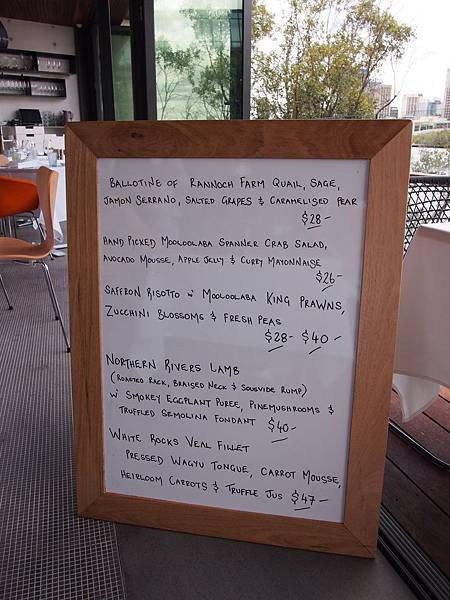 BALLOTINE OF RANNOCH FARM QUAIL, SAGE,
JAMON SERRANO, SALTED GRAPES & CARAMELISED PEAR
$28-
HAND PICKED MOOLOOLABA SPANNER CRAB SALAD,
AVOCADO MOUSSE, APPLE JELLY & CURRY MAYONNAISE
$26-
SAFFRON RISOTTO w MOOLOOLABA KING PRAWNS,
ZUCCHINI BLOSSOMS & FRESH PEAS
$28- $40-
NORTHERN RIVERS LAMB
(ROASTED RACK, BRAISED NECK & SOUSVIDE RUMP)
w' SMOKEY EGGPLANT PUREE, PINEMUSHROOMS &
TRUFFLED SEMOLINA FONDANT $40-
WHITE ROCKS VEAL FILLET
PRESSED WAGYU TONGUE, CARROT MOUSSE,
HEIRLOOM CARROTS & TRUFFLE JUS $47-